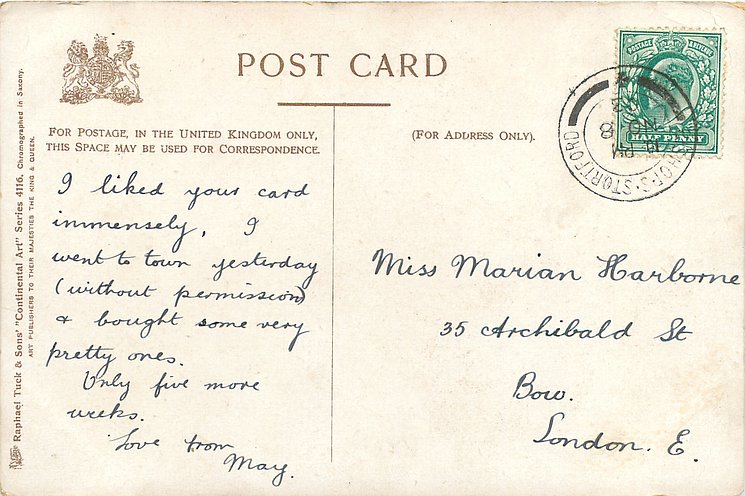 POST CARD
FOR POSTAGE, IN THE UNITED KINGDOM ONLY,
THIS SPACE MAY BE USED FOR CORRESPONDENCE.
(FOR ADDRESS ONLY).
I liked your card
immensely, I
went to town yesterday
(without permission)
& bought some very
pretty ones.
Only five more
weeks.
Love from
May.
Miss Marian Harborne
35 Archibald St
Bow.
London. E.
POSTAGE REVENUE
HALF PENNY
STORTFORD
Raphael Tuck & Sons' "Continental Art" Series 4116. Chromographed in Saxony.
ART PUBLISHERS TO THEIR MAJESTIES THE KING & QUEEN.